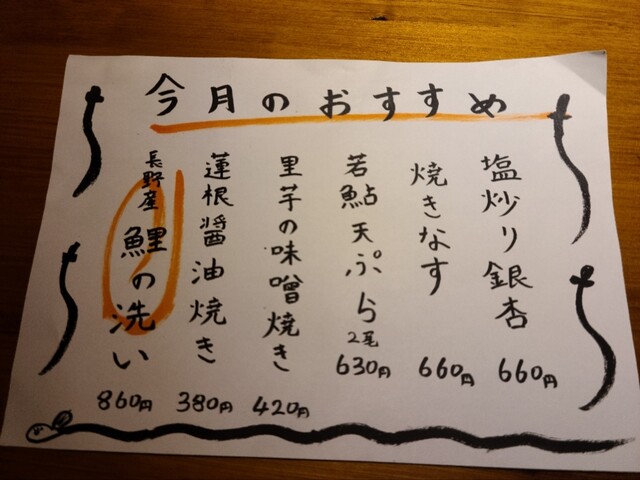 今月のおすすめ
塩炒り銀杏
660円
焼きなす
660円
若鮎天ぷら2尾
630円
里芋の味噌焼き
420円
蓮根醤油焼き
380円
長野産 鯉の洗い
860円